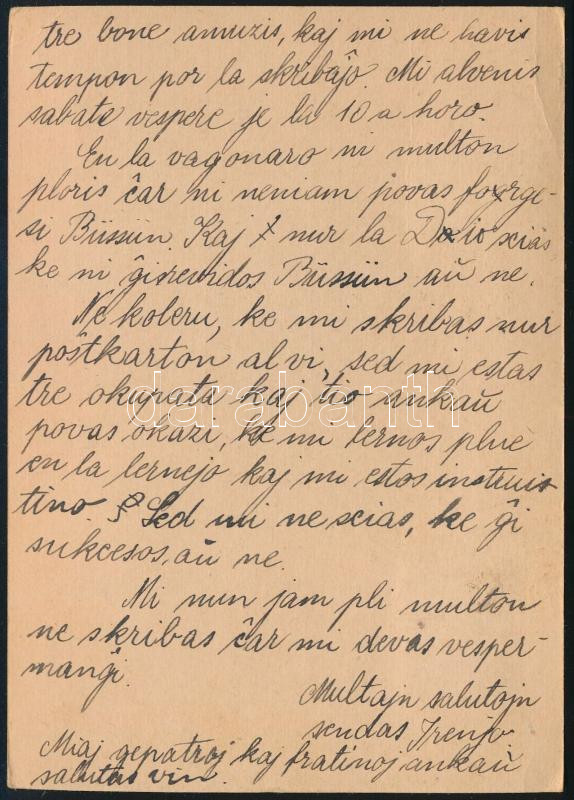 tre bone amuzis, kaj mi ne havis
tempon por la skribaĵo. Mi alvenis
sabate vespere je la 10 a horo.
En la vagonaro ni multon
ploris ĉar ni neniam povas forge-
si Büssün. Kaj nur la Dio scias
ke ni ĝisrevidos Büssün aŭ ne.
Ne koleru, ke mi skribas nur
poŝtkarton al vi, sed mi estas
tre okupata kaj tio ankaŭ
povas okazi, ke mi lernos plue
en la lernejo kaj mi estos instruis-
tino. Sed mi ne scias, ke ĝi
sukcesos, aŭ ne.
Mi nun jam pli multon
ne skribas ĉar mi devas vesper-
manĝi.
Multajn salutojn
sendas Irenjo
Miaj gepatroj kaj fratinoj ankaŭ
salutas vin.
darabanth